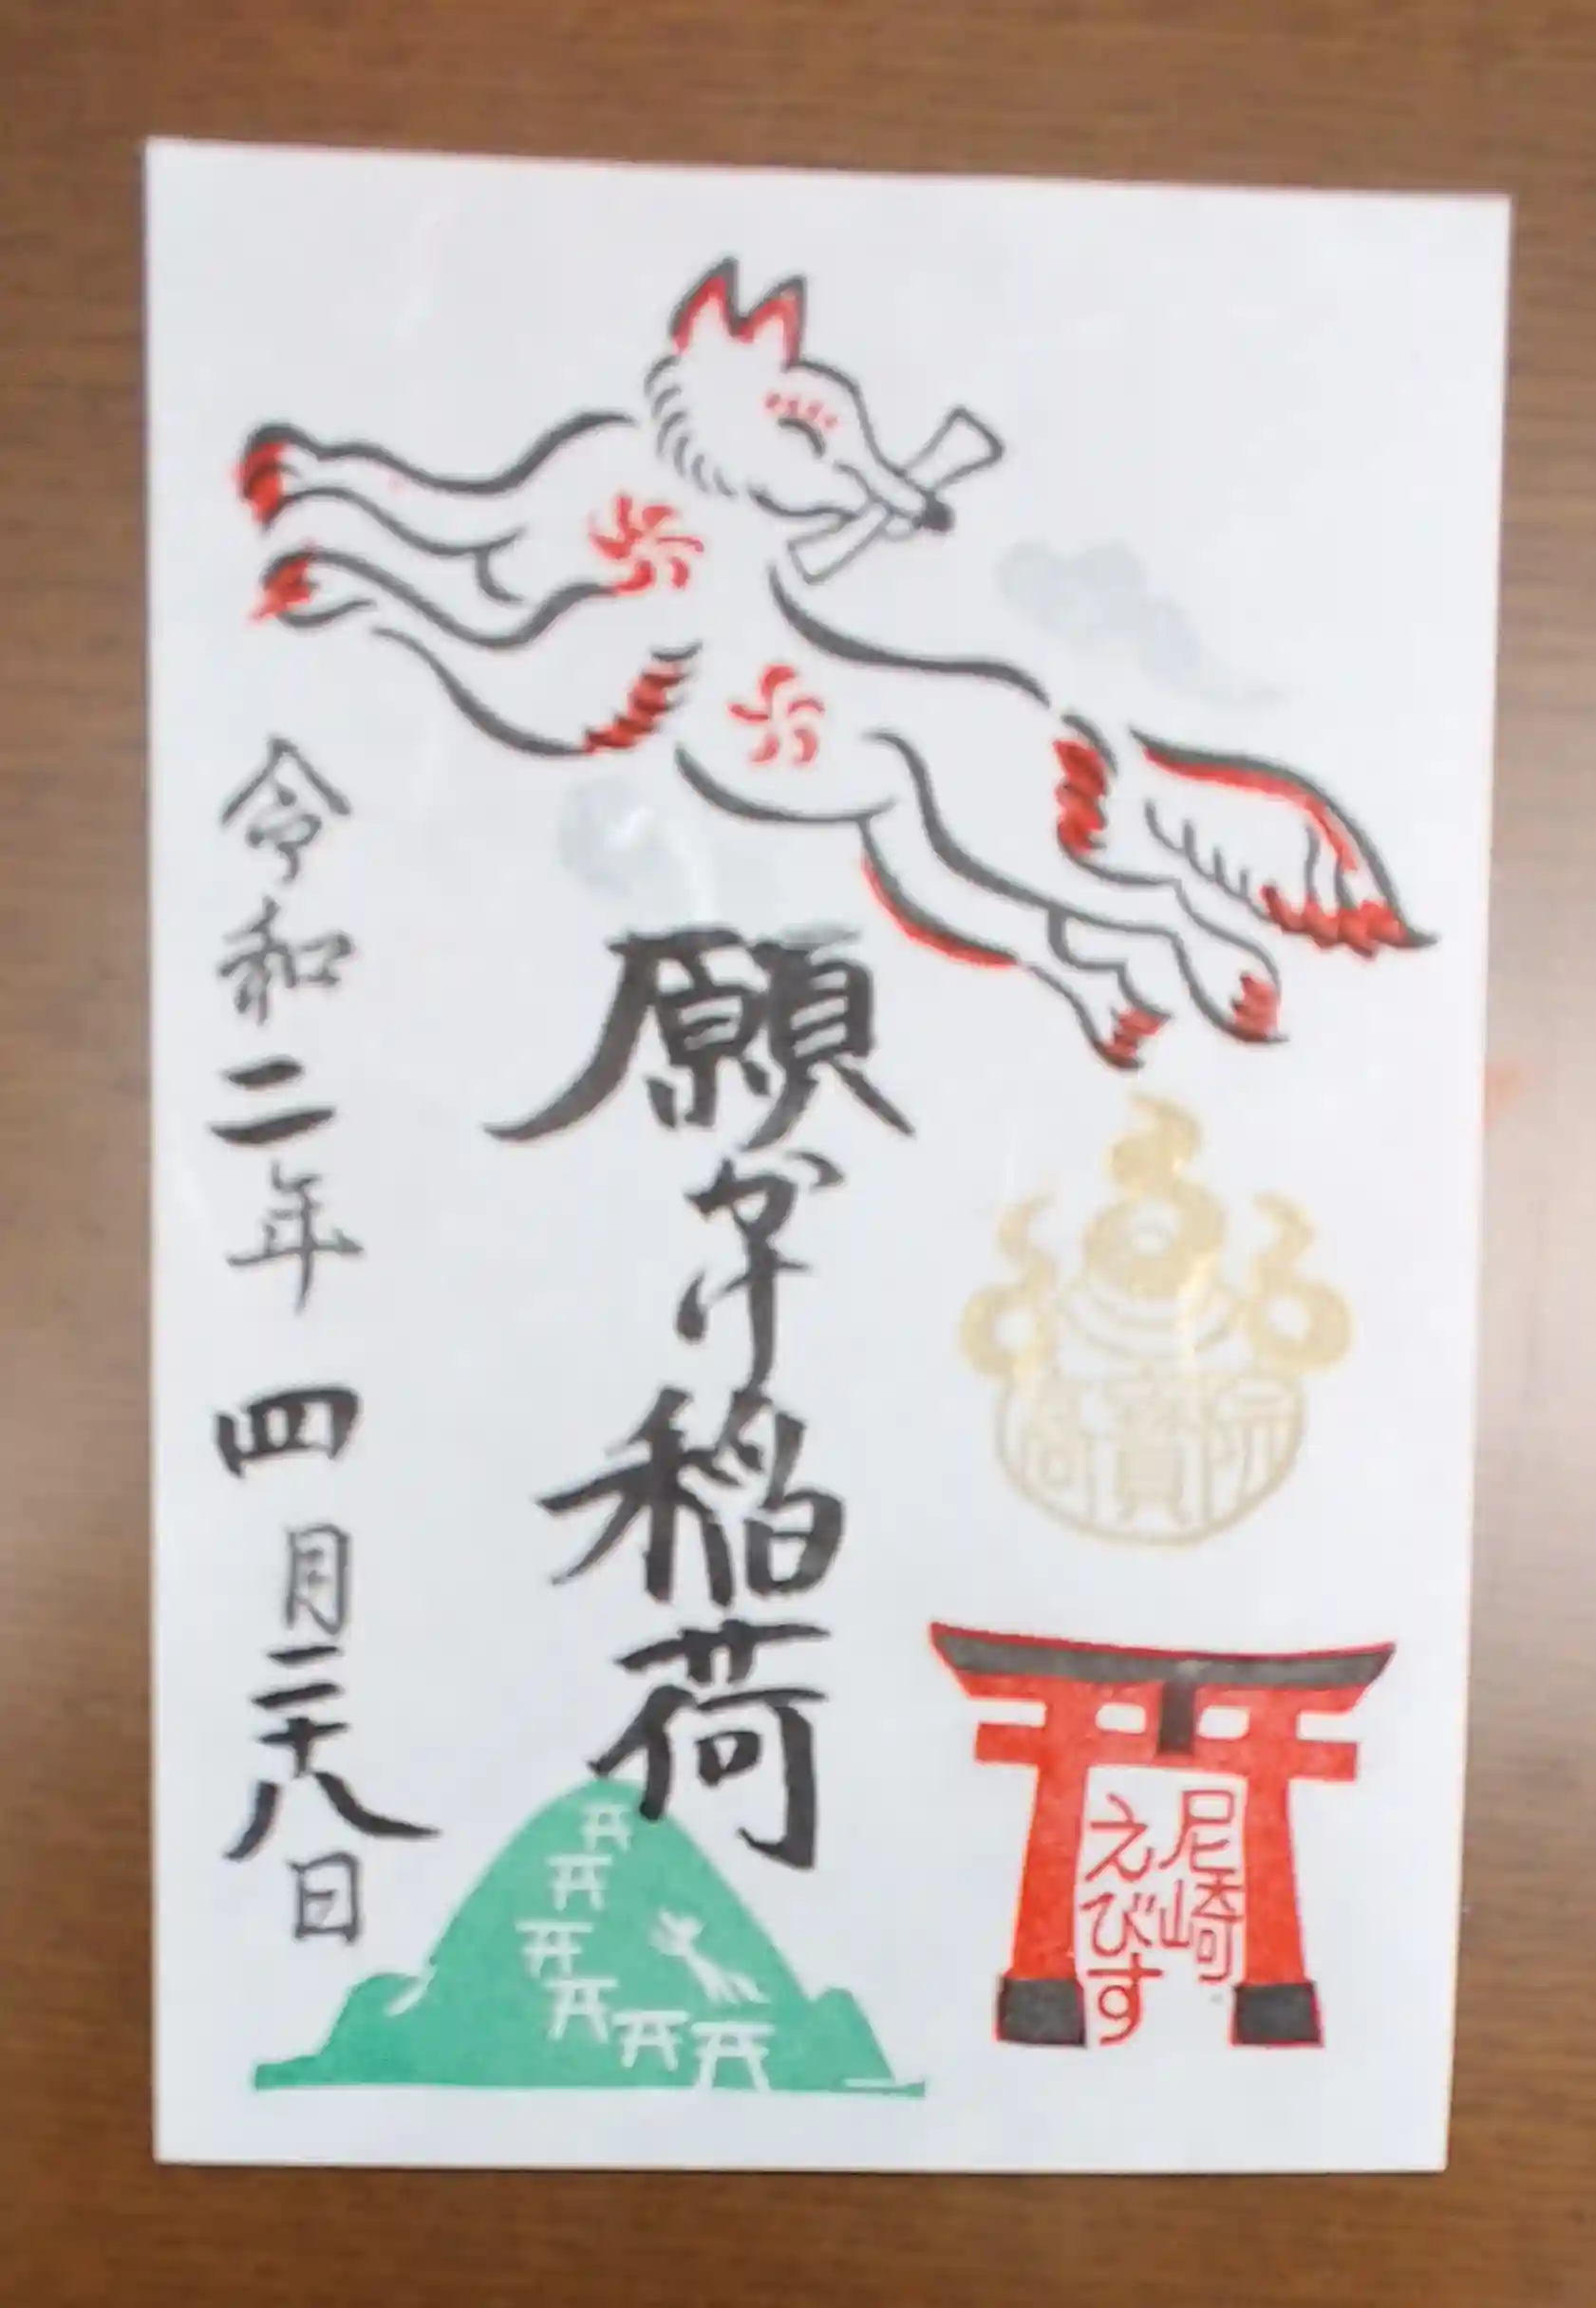 願かけ稲荷
尼崎
えびす
令和二年四月二十八日